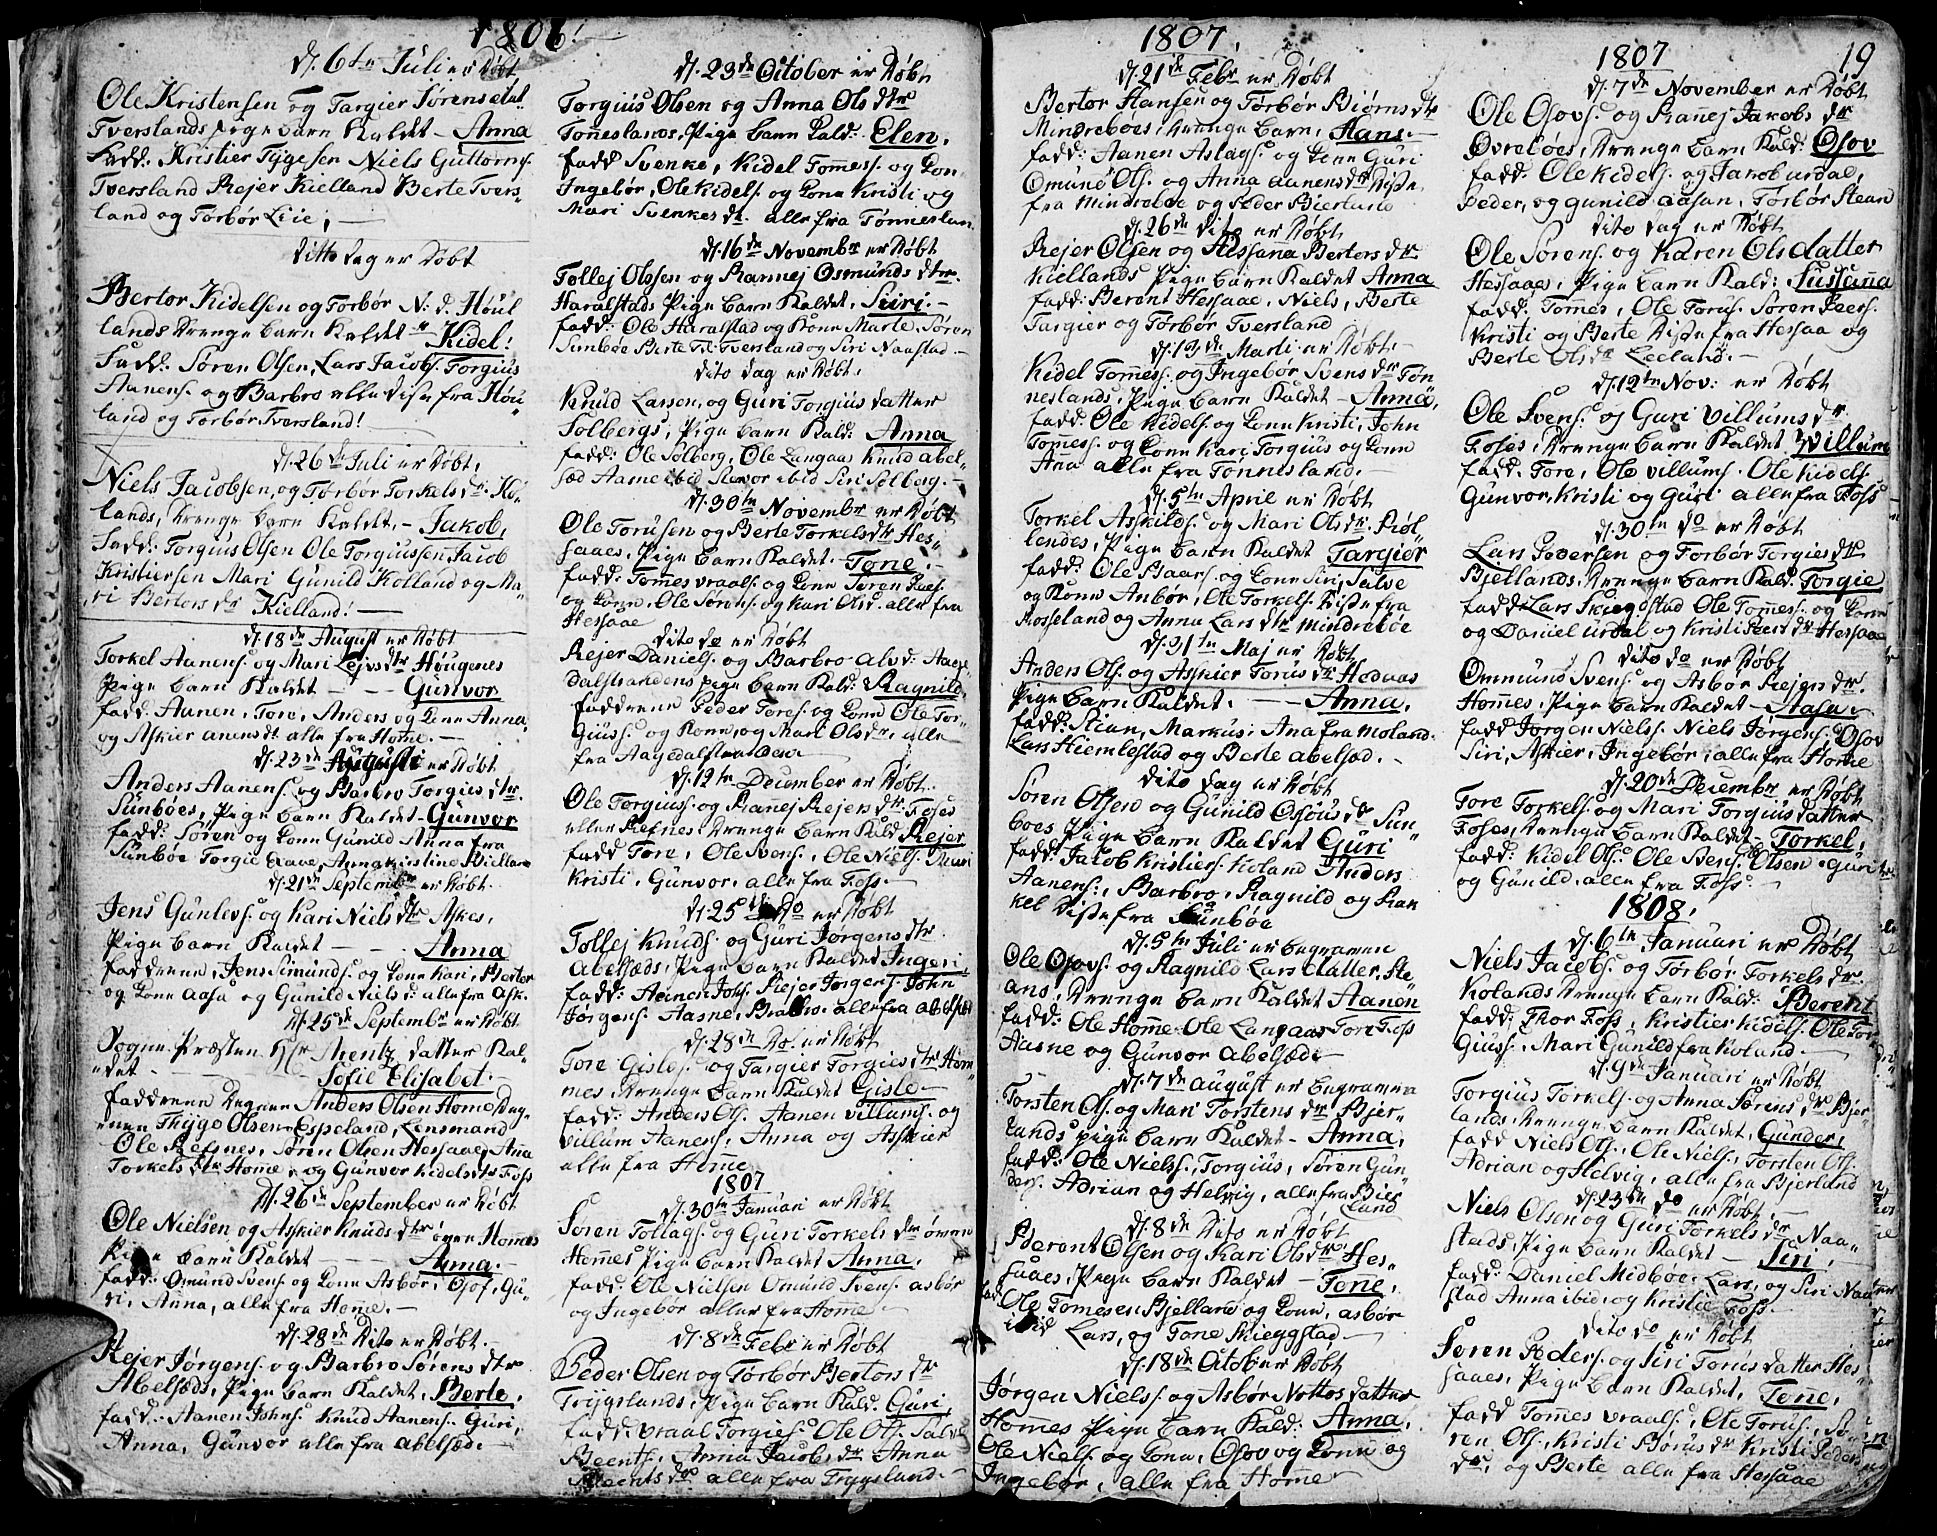 1806!
dj. 6te Juli er Døbt
Ole Kristensen og Targier Sørens datt.
Tverslands Pige barn Kaldet - Anna
Fadd: Kristier Tygesen Niels Guttorms.
Tversland Rejer Kielland Berte Tvers-
land og Torbør Lie, -
ditto dag er Døbt
Bertor Kidelsen og Torbør N: d. Høul
lands Drenge barn Kaldet Kidel!
Fadd: Søren Olsen, Lars Jacobs. Torgius
Aanens. og Barbro alle disse fra Høu-
land og Torbør Tversland!
dj. 26de Juli er Døbt,
Niels Jacobsen, og Tørbør Torkels dr. Ko-
lands, Drenge barn Kaldt. - Jakob,
Fadd: Torgius Olsen Ole Torgiussen, Jacob
Kristiersen Mari Gunild Kolland og Ma-
ri Bertors dr Kielland! -
dj. 18de August er Døbt
Torkel Aanens. og Mari Lejvs dtr Hougenes
Pige barn Kaldet - - Gunvor
fad: Aanen, Tore, Anders og Kone Anna,
og Askier anens dt alle fra Home. -
dj. 23de Augusti er Døbt
Anders Aanens. og Barbro Torgies dtr.
Sunbøes, Pige barn Kaldet - Gunvor
fadd: Søren og Kone Gunild Anna fra
Sunbøe Torgie Aave, Anna Kirstine Kielland
dj. 21de September er Døbt.
Jens Gunlevs. og Kari Niels dtr Askes,
Pige barn Kaldet - - Anna
fadderene, Jens Simunds. og Kone Kari, Bertor
og Kone Aasa og Gunild Niels d: alle fra Ask.
dj. 25de September er Døbt.
Sogne Præsten Hr Mentz datter Kal-
det - - Sofie Elisabet. -
fadderene Degnen Anders Olsen Home, Deg-
nen Thygo Olsen Espeland, Lensmand
Ole Refsnes, Søren Olsen Hessaae, Ana
Torkels dtr Home - og Gunvor Kidels dtr Foss
dj. 26de September er Døbt
Ole Nielsen og Askier Knuds dtr øvre Homes
Pige barn Kaldet - - Anna. -
fadd: Omund Svens. og Kone Asbør, Osof, Gu-
ri, Anna, alle fra Home. -
dj. 28de Dito er Døbt. -
Rejer Jørgens. og Barbro Sørens dtr
Abelsæds, Pige barn Kaldet, Berte.
fadd: Aanen Johns. Knud Aanens. Guri,
Anna, Gunvor alle fra abelsæd. -
dj. 23de October er Døbt
Torgius Olsen og Anna Ols dtr
Tønneslands, Pige barn Kald: Elen.
fadd Svenke, Kidel Tommess. og Kon
Ingebør, Ole Kidels. og Kone Kristi, og
Mari Svenkes dr. alle fra Tønneslan.
dj. 16de November er Døbt
Tollej Olssen og Rannej Osmunds dtr.
Haralstads Pige barn Kaldet, Siiri. -
fadd: Ole Haralstad og Kone Marte, Søren
Sunbøe Berte Tversland og Siri Naastad -
Dito dag er Døbt,
Knud Larsen, og Guri Torgius datter
Solbergs, Pige barn Kald: Anna
fadd: Ole Solberg, Ole Langaas Knud abel-
sæd Aasne ibid Gunvor ibid Siri Solberg. -
dj. 30te November er Døbt
Ole Torussen og Berte Torkels dtr Hes-
saaes, Pige barn Kaldet - Tone. -
fadd: Tomes vraals. og Kone Søren Peers.
og Kone, Ole Sørens. og Kari Ols d. alle fra
Hessaae
Dito do er Døbt
Rejer Daniels. og Barbro alvs d: Aage-
dalstrandens Pige barn Kald: Ragnild
fadderene Peder Tores. og Kone Ole Tor-
giuss. og Kone, og Mari Ols dr. alle
fra Aagedalstranden
dj. 12te December er Døbt.
Ole Torgiuss. og Ranej Rejers dtr. Foses
eller Refsnes Drenge barn Kald Rejer
fadd Tore, Ole Svens., Ole Niels. Mari
Kristi, Gunvor, alle fra Foss. -
dj. 25de do er Døbt
Tollej Knuds. og Guri Jørgens dtr.
Abelsæds, Pige barn Kaldet Ingeri
fadd: Aanen Johs. Rejer Jørgens. John
Jørgens. Aasne, Barbro. alle fra abelsæd
dj. 28de do. er Døbt
Tore Gisles. og Targier Torgies dtr Hom-
mes Drenge barn Kaldet Gisle -
fadd: Anders Ols. Aanen villums. og
villum Aanens., Anna og Askier
alle fra Home
1807
dj. 30te Januari er Døbt
Soren Tollags. og Guri Torkels dtr øvren
Homes Pige barn Kaldet Anna.
fadd: Ole Nielsen Omund Svens. asbør
og Ingebor aller fra Home -
dj. 8de Febr er Døbt
Peder Olsen og Torbør Bertors dtr
Trygslands, Pige barn Kald. Guri,
fadd: vraal Torgies. Ole Ols. Salve
Beents., Anna Jacobs dr Anna
Beents dr alle fra Trygsland. -
1807,
dj. 21de Febr er Døbt
Bertor Hansen og Torbør Biørns dtr
Mindrebøes, Drenge barn, Hans -
fadd: Aanen Aslags. og Kone Guri
Omund Ols. og Anna aanens dtr Disse
fra Mindrebøe og Peder Bierland
dj. 26de dito er Døbt
Rejer Olsen og Hessana Bertors dtr
Kiellands Pige barn Kaldet Anna
fadd: Berent Hessaae, Niels, Berte
Targier og Torbør Tversland
dj. 13de Marti er Døbt. -
Kidel Tomess. og Ingebor Svens dr Tøn
neslands, Pige barn Kaldet - Anna,
fadd: Ole Kidels. og Kone Kristi, John
Tomess. og Kone Kari Torgius og Kone
Ana alle fra Tønnesland. -
dj. 5te April er Døbt
Torkel Asskilds. og Mari Ols dr. Røl-
landes, Pige barn Kaldet Targier
fadd: Ole Baars. og Kone Siri, Salve
og Kone Anbør, Ole Torkels. Disse fra
Rosseland og Anna Lars dtr Mindrebøe
dj. 31te Maj er Døbt,
Anders Ols. og Askier Torus dr Hodnas
Pige barn Kaldet. - Anna.
fadd: Stian, Markus, Ana fra Moland.
Lars Hiemlestad og Berte abelsæd. -
dito dag er Døbt
Soren Olsen og Gunild Osous dr Sun-
boes Pige barn Kaldet Guri
fadd: Jacob Kristiers. Koland Anders
Aanens., Barbro, Ragnild og Ran
kel Disse fra Sunbøe
dj. 5te Juli er begraven
Ole Osovs. og Ragnild Lars datter, Ste-
ans, Drenge barn Kaldet Aanen
fadd: Ole Home. Ole Langaas Tore Foss
Aasne og Gunvor Abelsæd. -
dj. 7de august er begraven
Torsten Ols. og Mari Torstens dr Bjer-
lands Pige barn Kaldet - Anna,
fadd: Ole Niels., Torgius, Søren Gun-
ders. Adrian og Helvig, alle fra Bier
land
dj. 8de dito er Døbt
Berent Olsen og Kari Ols dtr Hes-
saaes, Pige barn Kaldet - Tone,
fad: Ole Tomesen Bjelland og Kone, asbør
ibid Lars, og Tone Skieggstad -
dj. 18de Octob: er Døbt
Jørgen Niels. og Asbør Nottos datter
Homes Pige barn Kald: Anna,
Ole Niels. og Kone, Osov og Kone og
Ingebor, alle fra Home
1807
19
dj. 7de November er Døbt
Ole Osovs. og Ranej Jakobs dr
Øvrebøes, Drenge barn Kald: Osov
fadd: Ole Kidels. og Jakob urdal,
Peder, og gunild aasan, Torbør Stean
dito dag er Døbt
Ole Sørens. og Karen Ols datter
Hessaaes, Pige barn Kald: Sussanna
fadd: Tomes, Ole Torus. Soren Peers.
Kristi og Berte Disse fra Hessaa og
Berte Ols dr Leeland. -
dj. 12te Nov: er Døbt
Ole Svens. og Guri Villums dr.
Foses, Drenge barn Kaldet Willum
fadd: Tore, Ole villums. Ole Kidels.
Gunvor, Kristi og Guri alle fra Foss
dj. 30te do er Døbt
Lars Pedersen og Torbør Torgies dtr
Bjellands, Drenge barn Kald. Torgie
fadd: Lars Skiegdstad Ole Tomes. og Kone
og Daniel urdal og Kristi Peers dr Hessaae
dito do er Døbt
Ommund Svens. og Asbør Rejers dr.
Hommes, Pige barn Kaldet - Aasa. -
fadd Jorgen Niels. Niels Jørgens. Osov
Siri, Askier, Ingebor, alle fra Home
dj. 20de Decembr er Døbt
Tore Torkels. og Mari Torgius datter
Foses, Drenge barn Kaldet - Torkel,
fadd: Kidel Ols. Ole Bens. Olsen Guri
og Gunild, alle fra Foss. -
1808,
dj. 6te Januari er Døbt
Niels Jacobs. og Torbør Torkels dr.
Kolands Drenge barn Kald: Berent
fadd: Thor Foss, Kristier Kidels. Ole Tor
giuss. Mari Gunild fra Koland -
dj. 9de Januari er Døbt
Torgius Torkels. og Anna Sørens dr Bjer-
lands, Drenge barn Kaldet, Gunder,
fadd Niels Ols., Ole Niels., Torsten Ols.
Adrian og Helvig, alle fra Bjerland
dj. 23de do er Døbt. -
Niels Olsen og Guri Torkels dr Naa-
stads, Pige barn Kaldet - Siri,
fadd: Daniel Midbøe, Lars, og Siri Naa
stad Anna ibid, og Kristie Foss.
dito do er Døbt
Soren Peders. og Siri Torus datter Hes-
saaes, Pige barn Kaldet, Tone,
fadd Tomes vraals., Ole Torus., So-
ren Ols., Kristi Børus dr Kristi Peders
dr. og Berte alle fra Hessaae